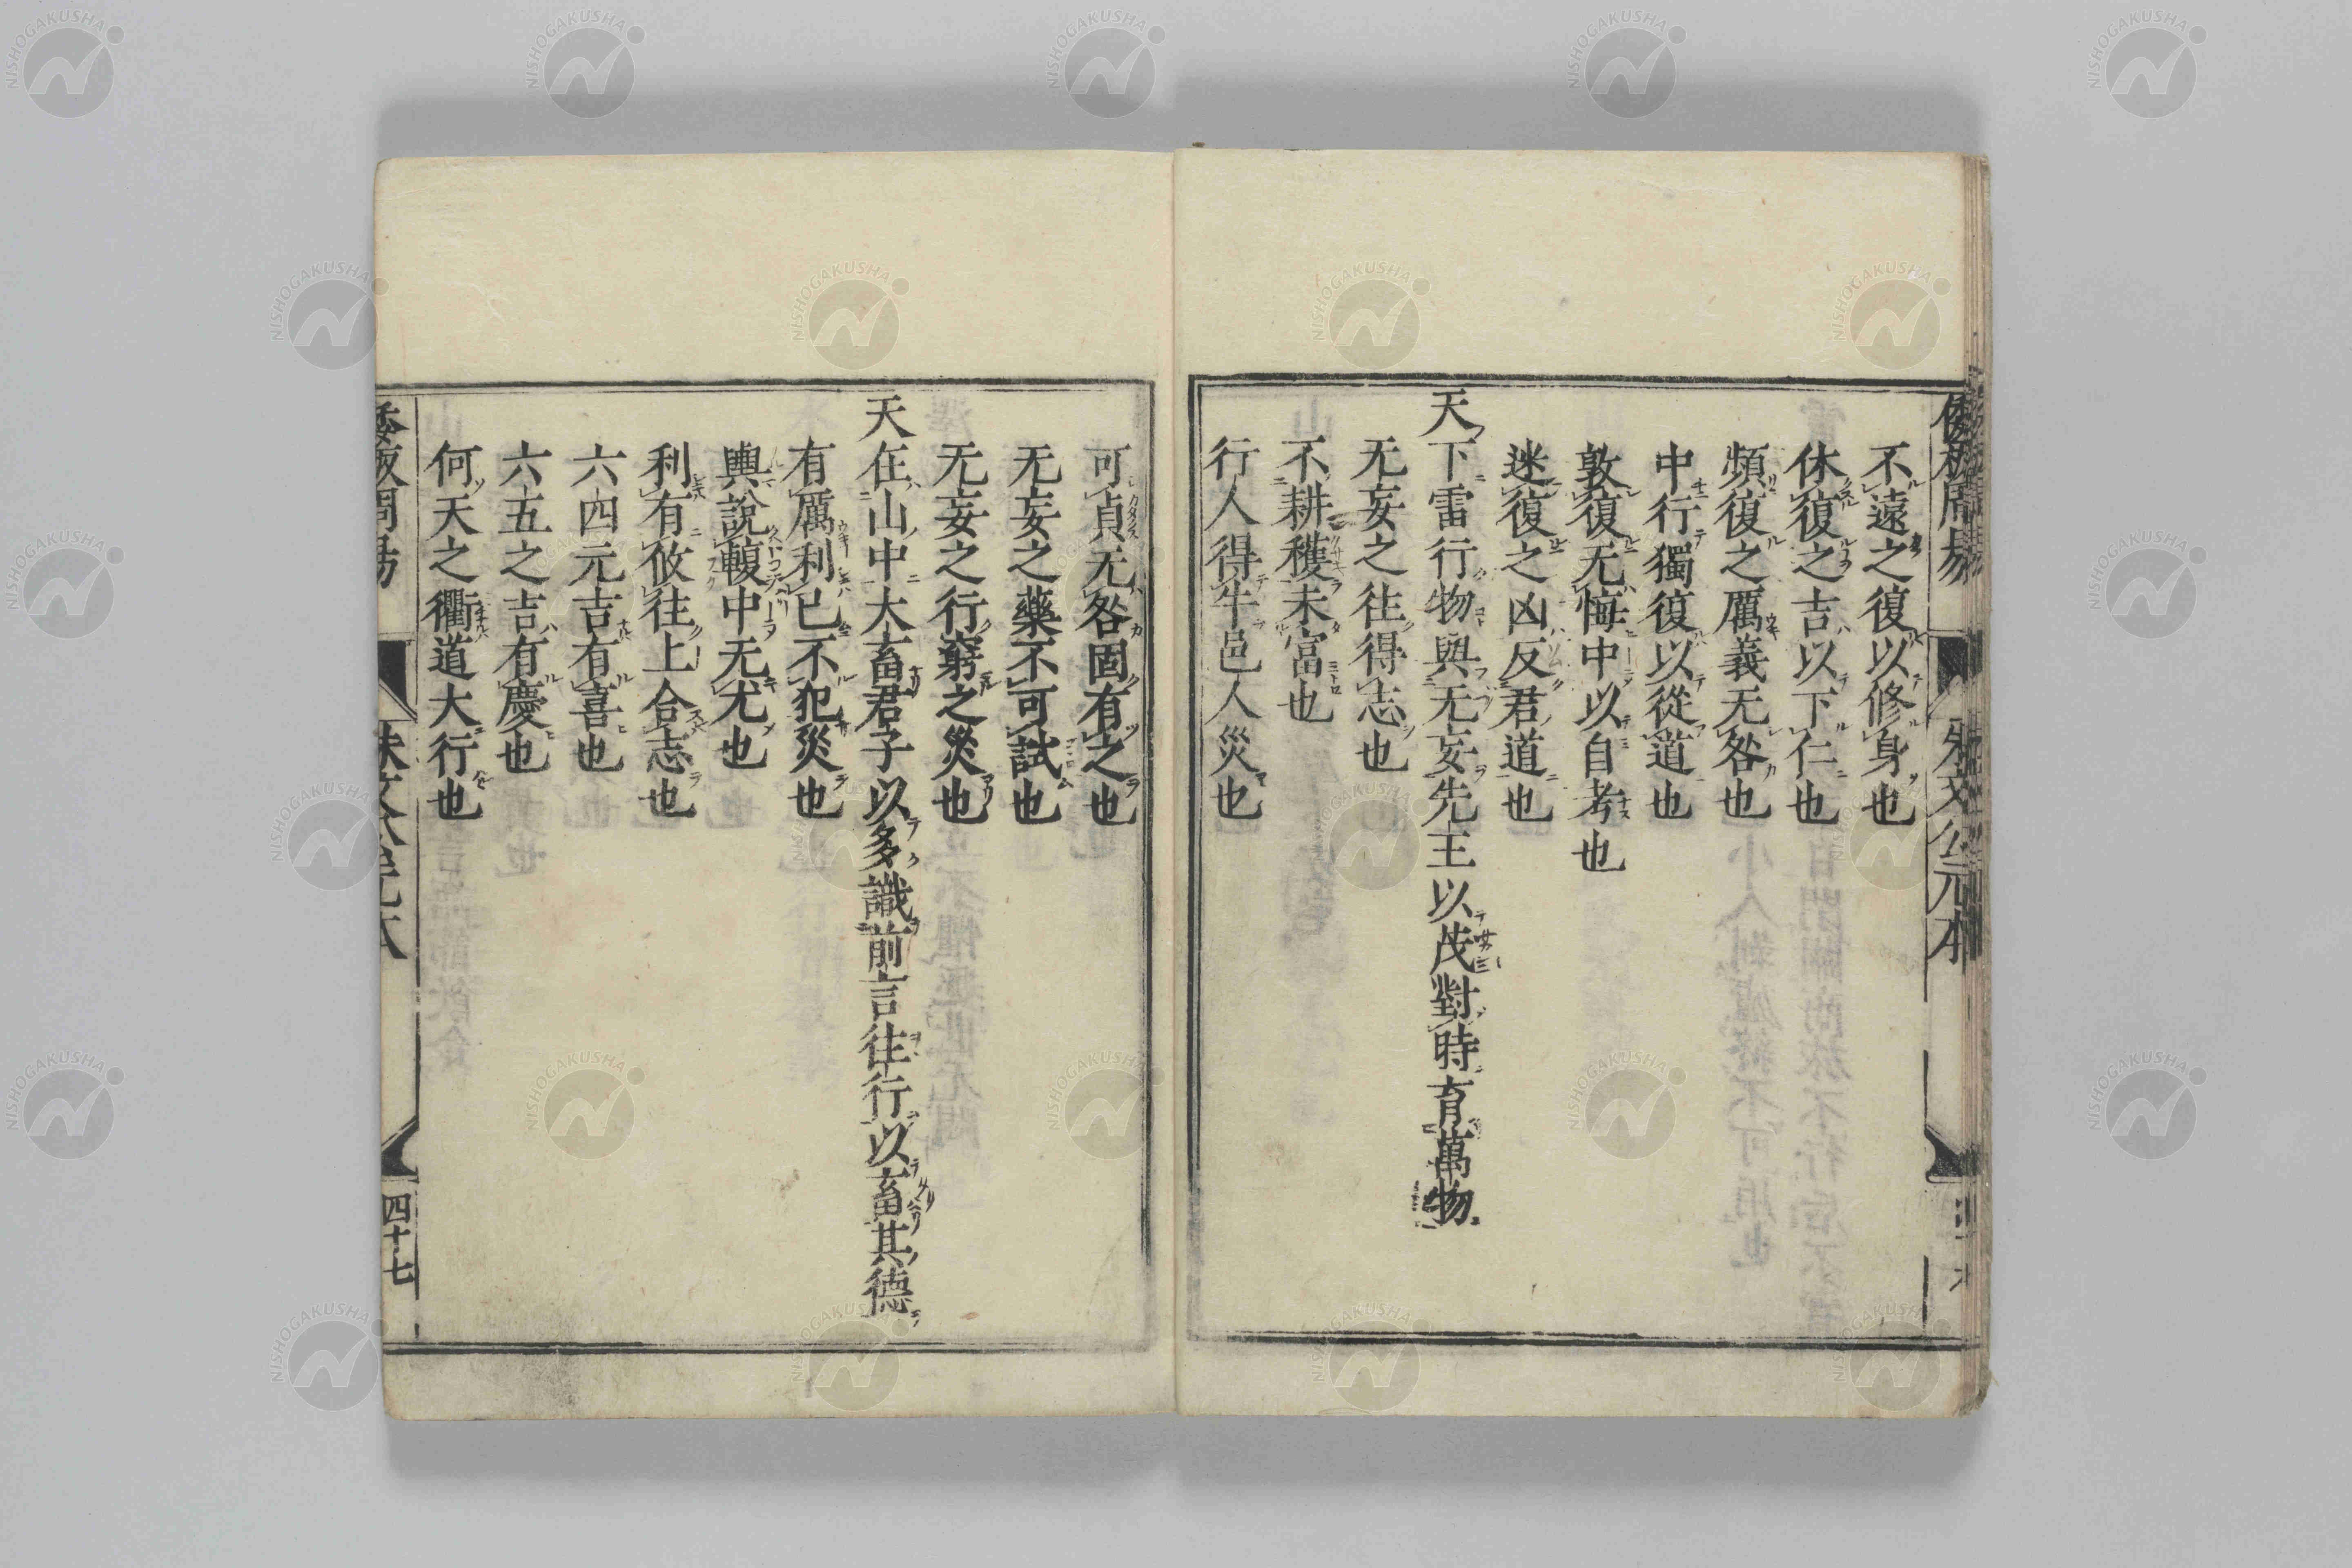 不遠之復以修身也
休復之吉以下仁也
頻復之厲義无咎也
中行獨復以從道也
敦復无悔中以自考也
迷復之凶反君道也
天下雷行物與无妄先王以茂對時育萬物
无妄之往得志也
不耕穫未富也
行人得牛邑人災也
可貞无咎固有之也
无妄之藥不可試也
无妄之行窮之災也
天在山中大畜君子以多識前言往行以畜其德
有厲利已不犯災也
輿說輹中无尤也
利有攸往上合志也
六四元吉有喜也
六五之吉有慶也
何天之衢道大行也
倭板周易
朱文公元本
四十七
NISHOGAKUSHA